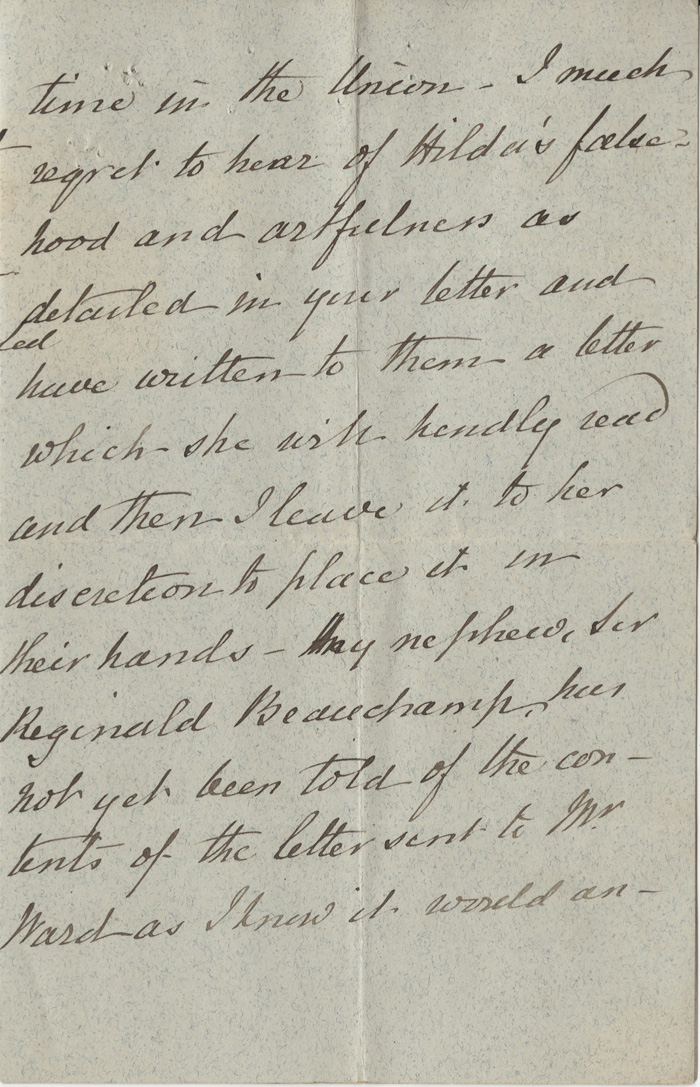 time in the Union - I much
regret to hear of Hilda's false=
hood and artfulness as
detailed in your letter and
have written to them a letter
which she will kindly read
and then I leave it to her
discretion to place it in
their hands - My nephew, Sir
Reginald Beauchamp, has
not yet been told of the con-
tents of the letter sent to Mr
Ward as I know it would an-